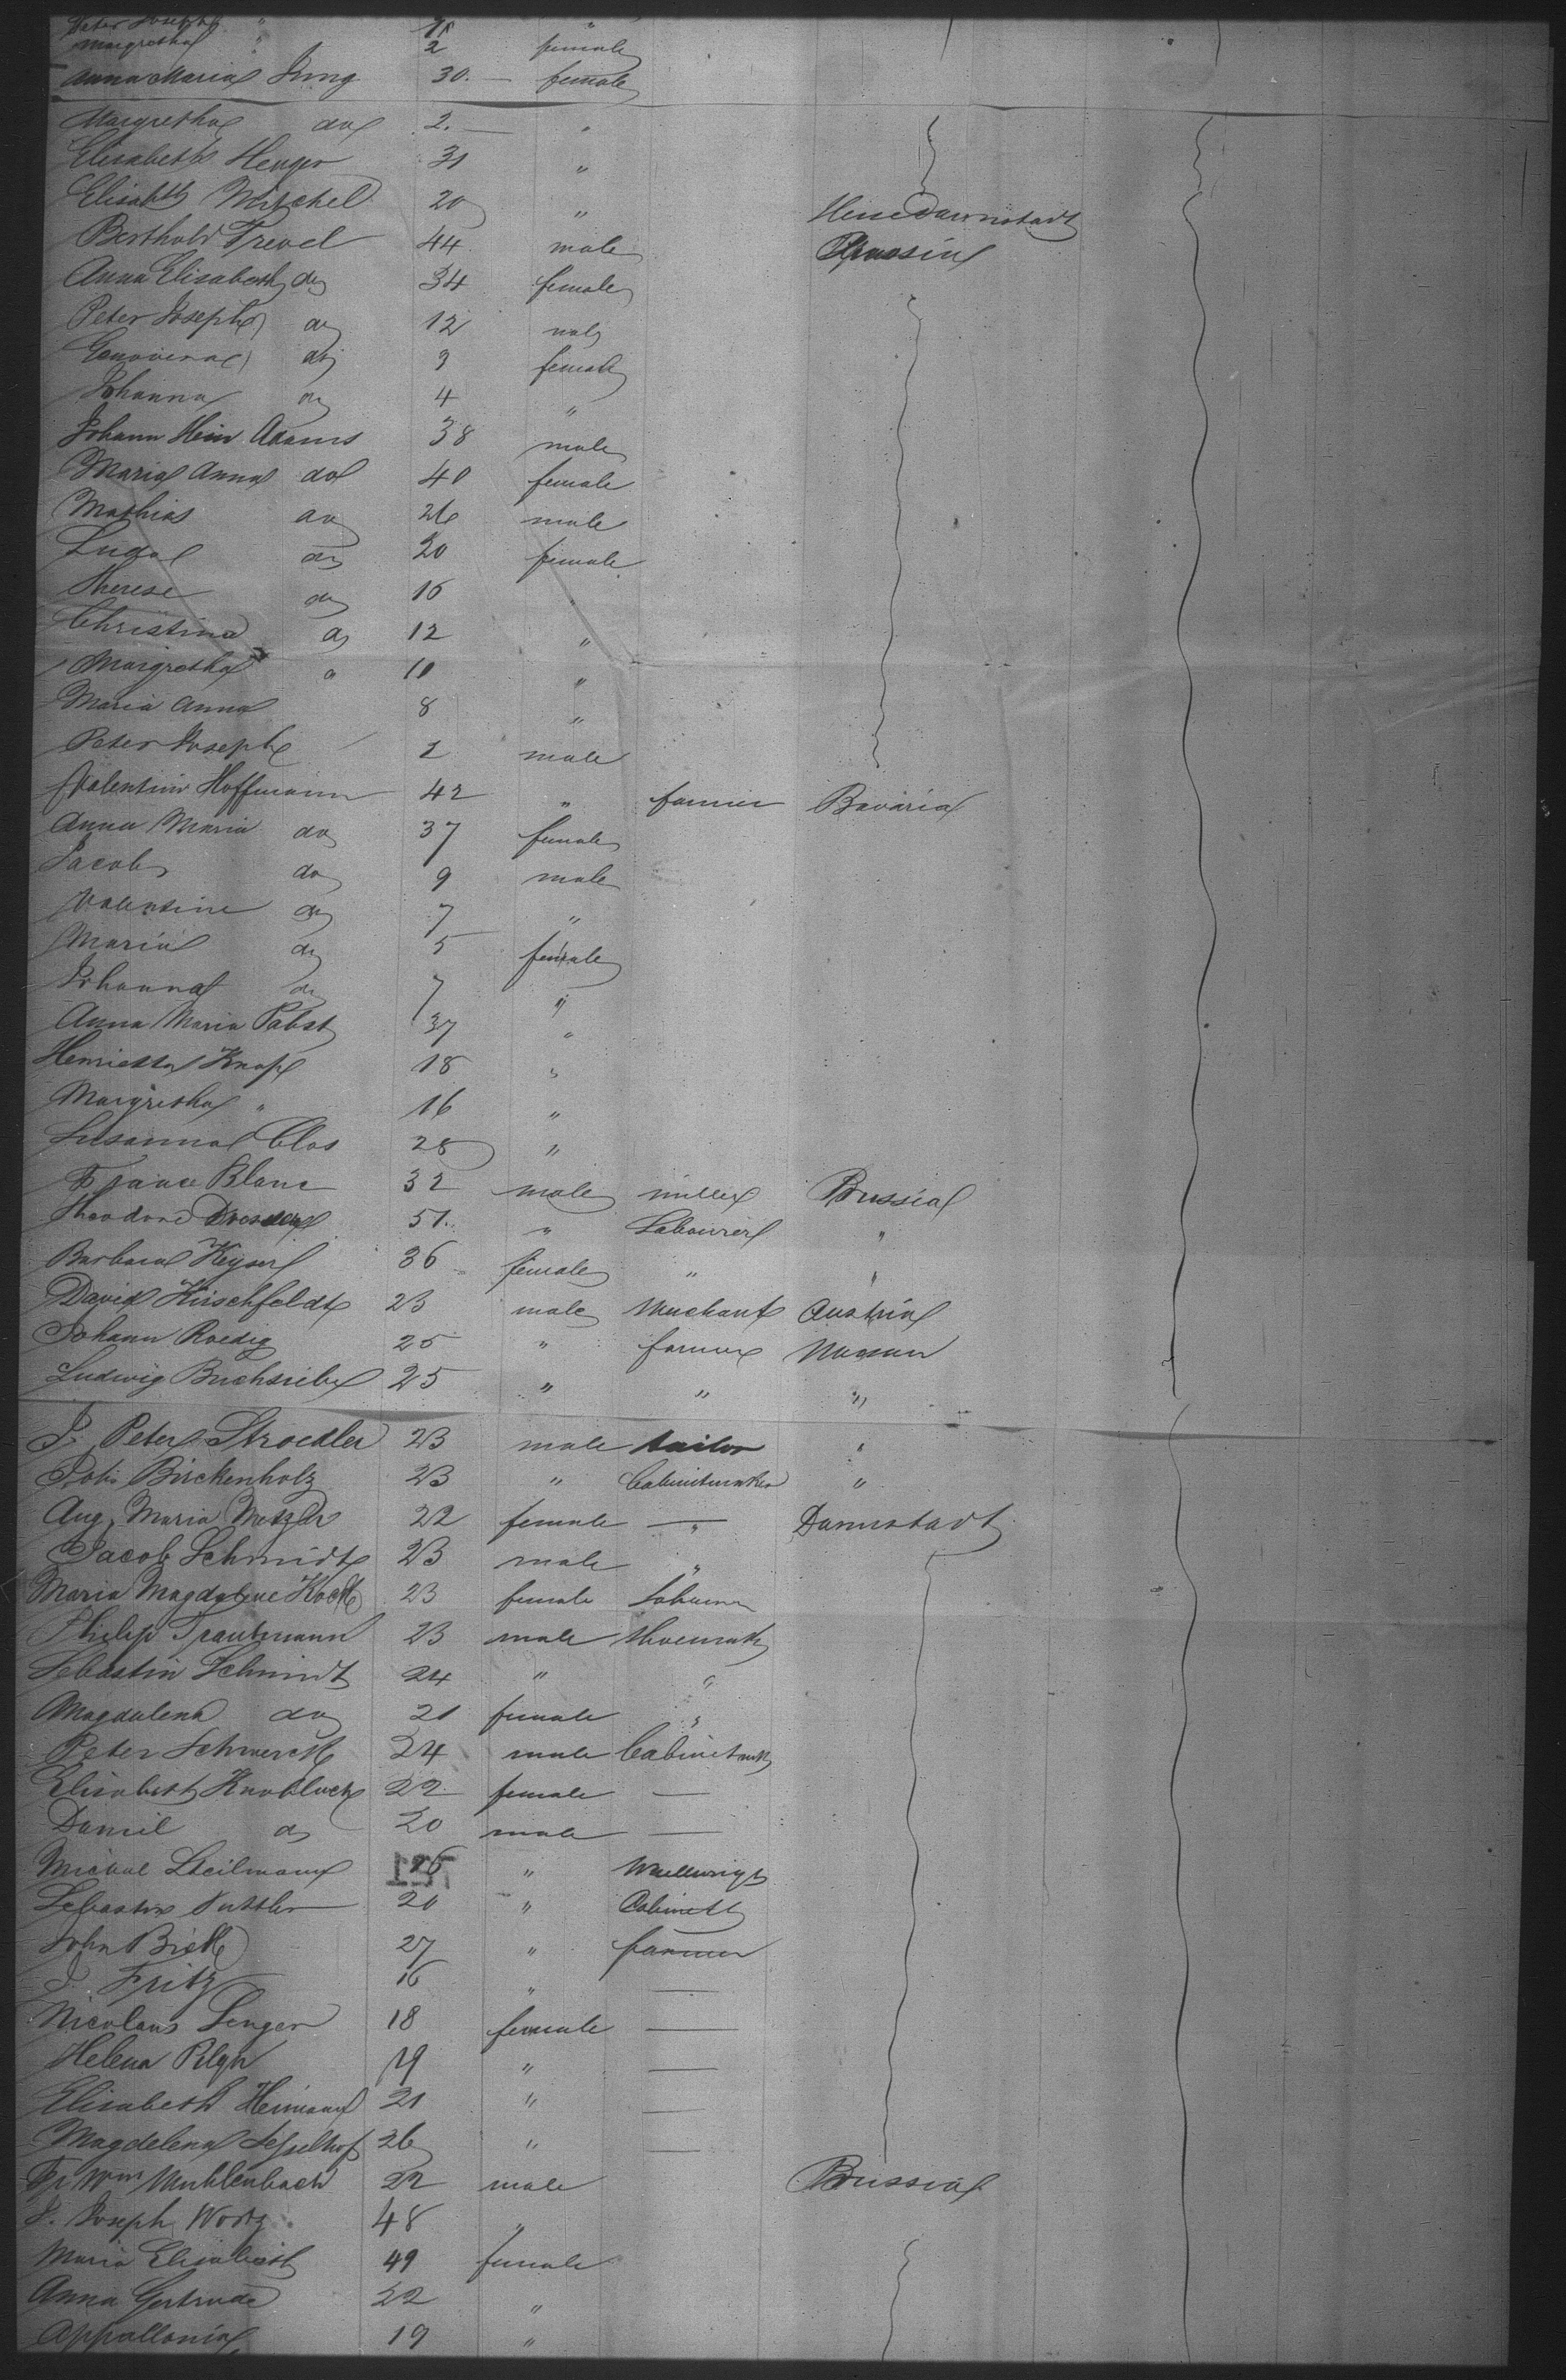 Peter Joseph "
Margretha " 2 female
Anna Maria Jung 30. — female
Margretha do 2. — "
Elisabeth Henger 31 "
Elisabth Mitschel 20 " Hesse Darmstadt
Berthold Trevel 44 male Prussia
Anna Elisabeth do 34 female
Peter Joseph do 12 male
Genovieva do 9 female
Johanna do 4 "
Johann Hein Adams 38 male
Maria Anna do 40 female
Mathias do 26 male
do 20 female
Therese do 16 "
Christina do 12 "
Margretha " 10 "
Maria Anna 8 "
Peter Joseph 2 male
Valentin Hoffmann 42 " farmer Bavaria
Anna Maria do 37 female
Jacob do 9 male
Valentine do 7 "
Maria do 5 female
Johanna do 7 "
Anna Maria Pabst 37 "
Henrietta Knapp 18 "
Margretha " 16 "
Susanna Clos 28 "
Blanc 32 male miller Prussia
Theodore 51. " Labourer "
Barbara Keyser 36 female " "
David Hirschfeldt 23 male Merchant Austria
Johann Roedig 25 " farmer Nassau
Ludwig 25 " " "
J. Peter Stroedter 23 male tailor "
Birckenholz 23 " Cabinetmaker "
Aug. Maria Metzger 22 female — " Darmstadt
Jacob Schmidt 23 male "
Maria Magdalene Koch 23 female Labourer
Philip Trautmann 23 male Shoemaker
Sebastin Schmidt 24 " "
Magdalena do 21 female "
Peter Schwerck 24 male Cabinetmak
Elisabeth Knobloch 22 female —
Daniel do 20 male —
Michael 26 "
Sebastin 20 " Cabinett
John Bick 27 " farmer
J. Fritz 16 " —
Nicolaus Senger 18 female —
Helena 19 " —
Elisabeth Heimann 21 " —
Magdelena 26 " —
Fr Wm Muhlenbach 22 male Prussia
J. Joseph 48 "
Maria Elisabeth 49 female
Anna Gertrude 22 "
Appallonia 19 "